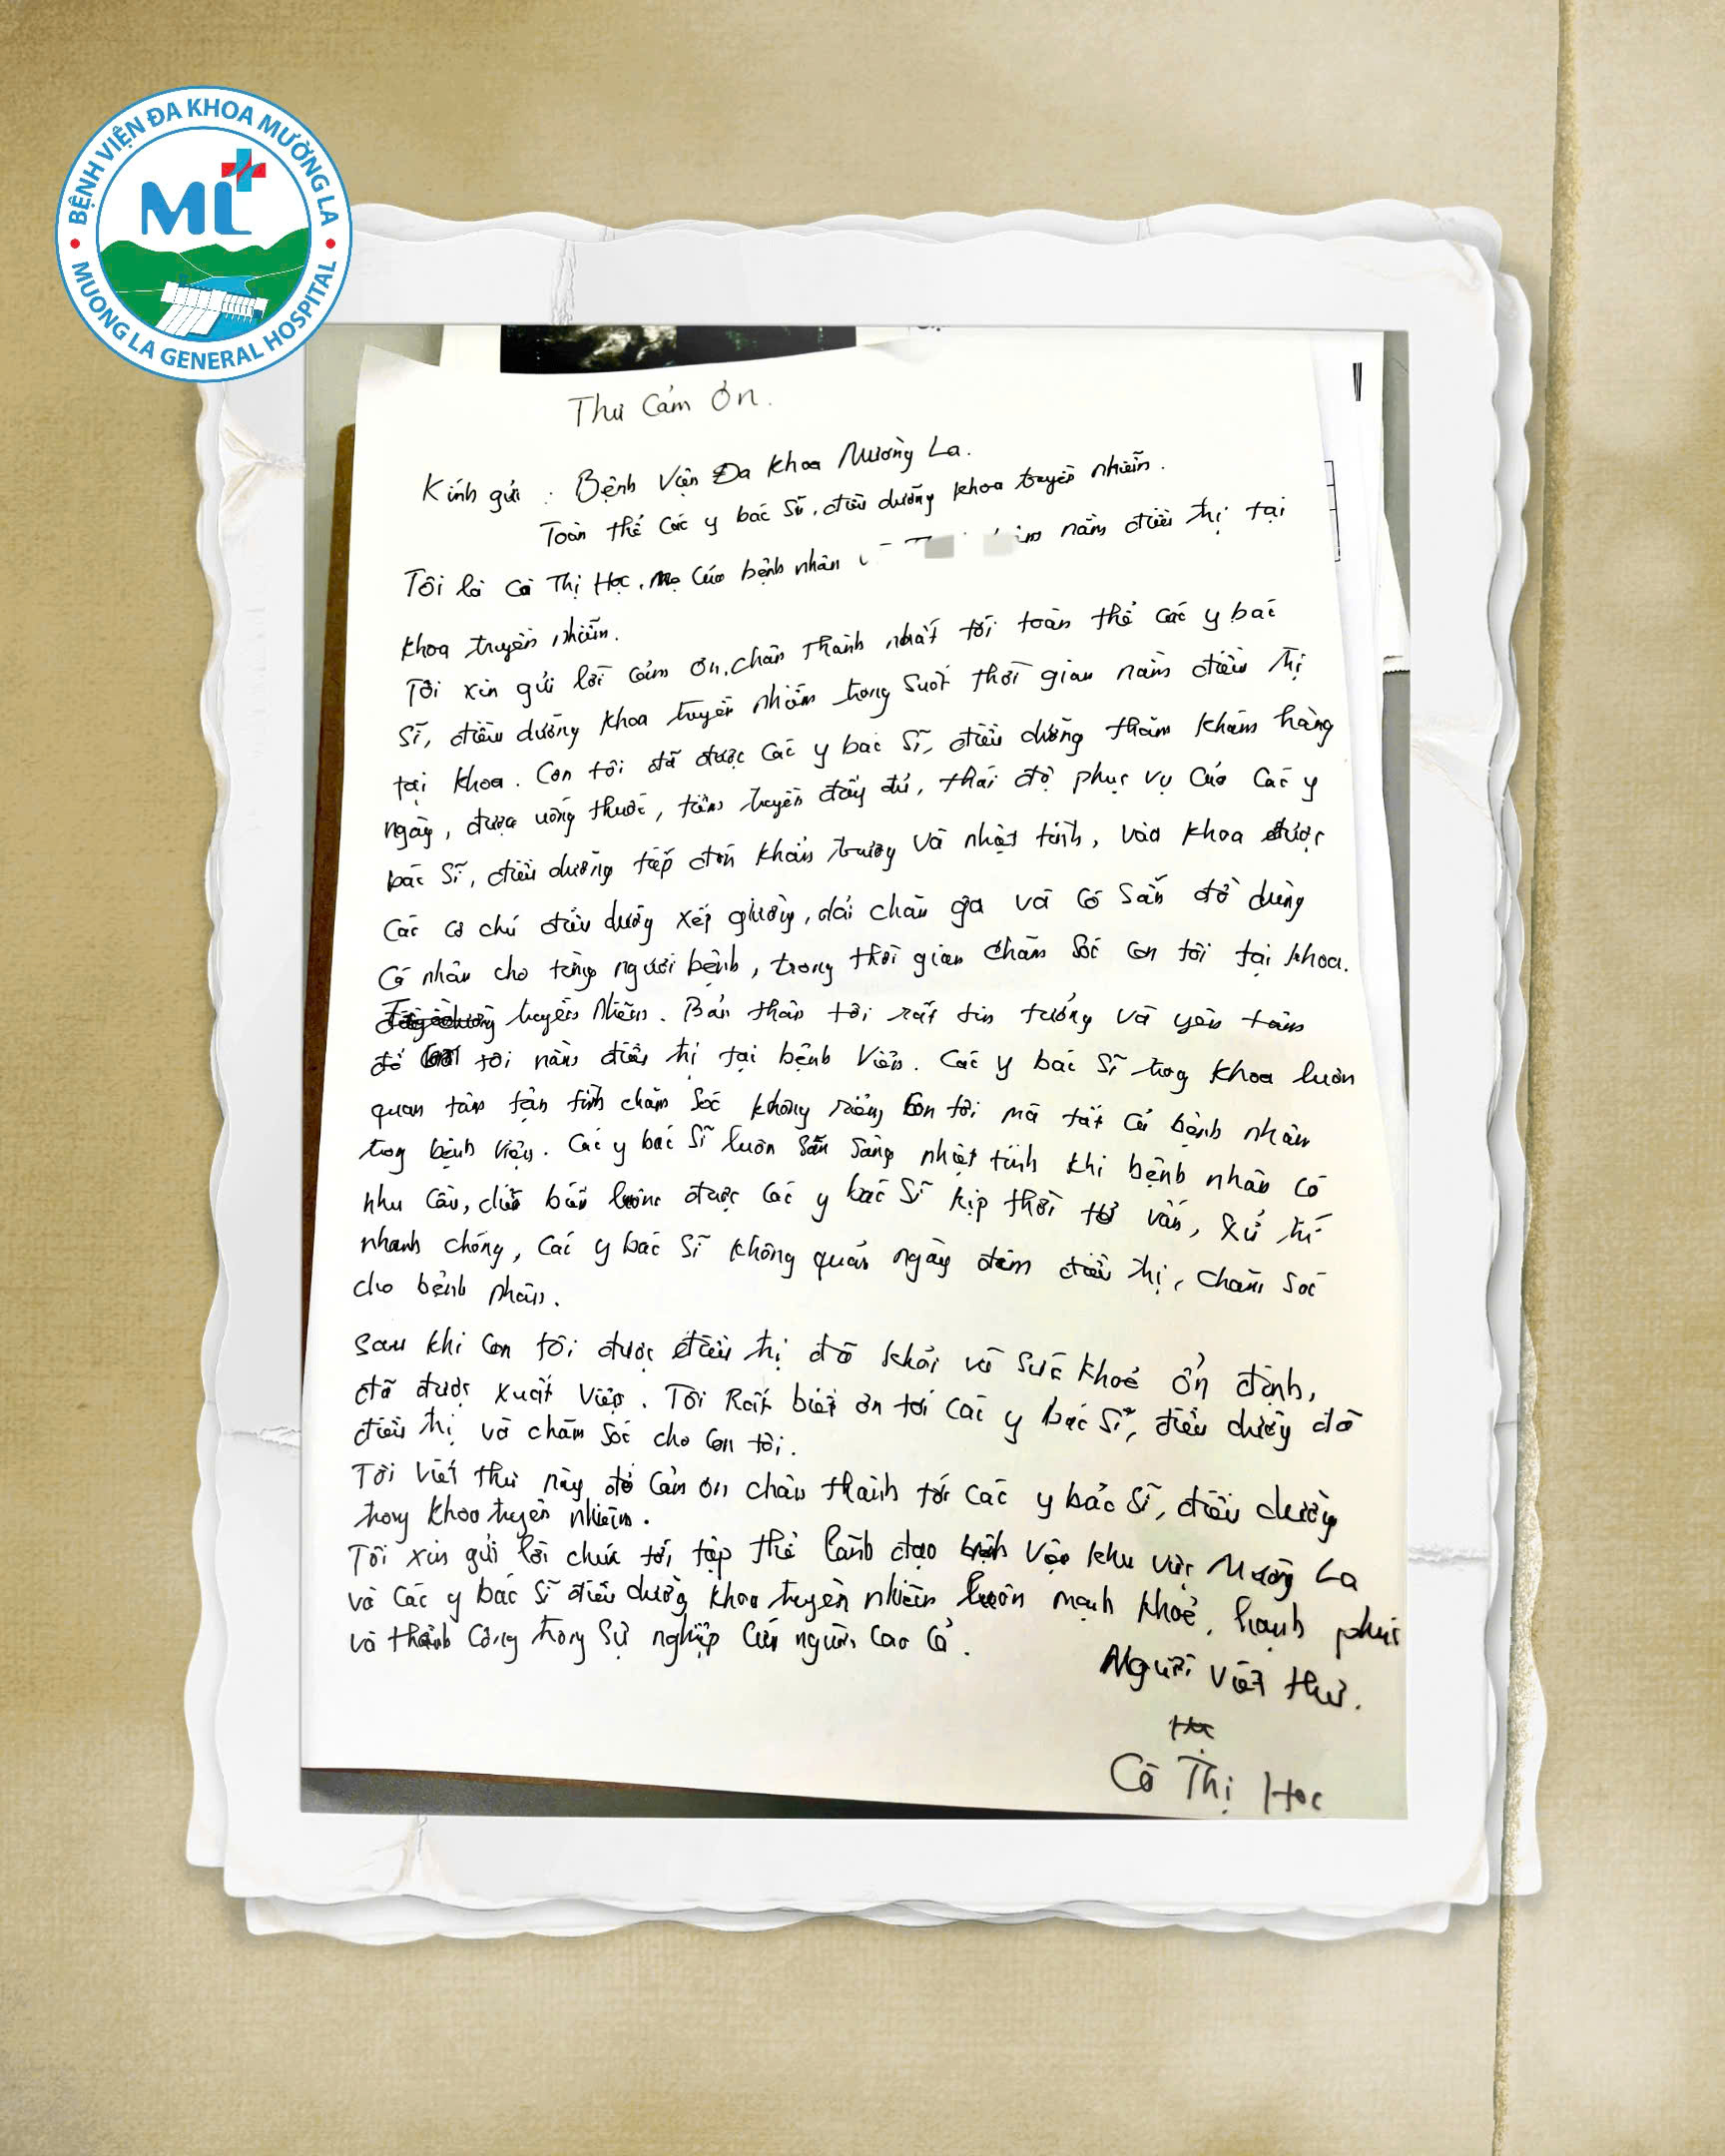 BỆNH VIỆN ĐA KHOA MƯỜNG LA
ML
MUONG LA GENERAL HOSPITAL
Thư Cảm Ơn.
Kính gửi : Bệnh Viện Đa Khoa Mường La.
Toàn thể các y bác sĩ, điều dưỡng khoa truyền nhiễm.
Tôi là Cà Thị Học, mẹ của bệnh nhân nằm điều trị tại
khoa truyền nhiễm.
Tôi xin gửi lời cảm ơn, chân thành nhất tới toàn thể các y bác
sĩ, điều dưỡng khoa truyền nhiễm trong suốt thời gian nằm điều trị
tại khoa. Con tôi đã được các y bác sĩ, điều dưỡng thăm khám hàng
ngày, được uống thuốc, tiêm truyền đầy đủ, thái độ phục vụ của các y
bác sĩ, điều dưỡng tiếp đón khẩn trương và nhiệt tình, vào khoa được
các cô chú điều dưỡng xếp giường, dải chăn ga và có sẵn đồ dùng
cá nhân cho từng người bệnh, trong thời gian chăm sóc con tôi tại khoa.
truyền nhiễm. Bản thân tôi rất tin tưởng và yên tâm
để tôi nằm điều trị tại bệnh viện. Các y bác sĩ trong khoa luôn
quan tâm tận tình chăm sóc không riêng con tôi mà tất cả bệnh nhân
trong bệnh viện. Các y bác sĩ luôn sẵn sàng nhiệt tình khi bệnh nhân có
nhu cầu, diễn biến luôn được các y bác sĩ kịp thời tư vấn, xử trí
nhanh chóng, các y bác sĩ không quản ngày đêm điều trị, chăm sóc
cho bệnh nhân.
Sau khi con tôi được điều trị đã khỏi và sức khoẻ ổn định,
đã được xuất viện. Tôi Rất biết ơn tới các y bác sĩ, điều dưỡng đã
điều trị và chăm sóc cho con tôi.
Tôi viết thư này để cảm ơn chân thành tới các y bác sĩ, điều dưỡng
trong khoa truyền nhiễm.
Tôi xin gửi lời chúc tới tập thể lãnh đạo bệnh viện khu vực Mường La
và các y bác sĩ điều dưỡng khoa truyền nhiễm luôn mạnh khoẻ, hạnh phúc
và thành công trong sự nghiệp cứu người cao cả.
Người viết thư.
Cà Thị Học